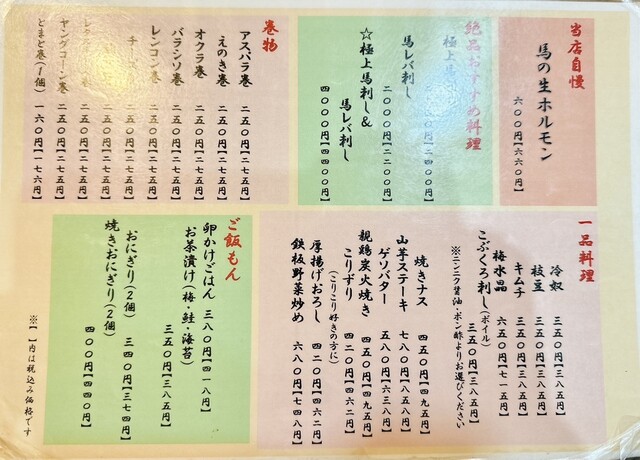 当店自慢
馬の生ホルモン 六〇〇円【六六〇円】
絶品おすすめ料理
極上馬
馬レバ刺し 二〇〇〇円【二二〇〇円】
☆極上馬刺し&
馬レバ刺し 四〇〇〇円【四四〇〇円】
巻物
アスパラ巻 二五〇円【二七五円】
えのき巻 二五〇円【二七五円】
オクラ巻 二五〇円【二七五円】
バラシソ巻 二五〇円【二七五円】
レンコン巻 二五〇円【二七五円】
二五〇円【二七五円】
二五〇円【二七五円】
二五〇円【二七五円】
ヤングコーン巻 二五〇円【二七五円】
とまと巻(1個) 一六〇円【一七六円】
一品料理
冷奴 三五〇円【三八五円】
枝豆 三五〇円【三八五円】
キムチ 三五〇円【三八五円】
梅水晶 六五〇円【七一五円】
こぶくろ刺し(ボイル) 三五〇円【三八五円】
※ニンニク醤油・ポン酢よりお選びください
焼きナス 四五〇円【四九五円】
山芋ステーキ 七八〇円【八五八円】
ゲソバター 五八〇円【六三八円】
親鶏炭火焼き 四五〇円【四九五円】
こりずり 四二〇円【四六二円】
(こりこり好きの方に)
厚揚げおろし 四二〇円【四六二円】
鉄板野菜炒め 六八〇円【七四八円】
ご飯もん
卵かけごはん 三八〇円【四一八円】
お茶漬け(梅・鮭・海苔) 三五〇円【三八五円】
おにぎり(2個) 三四〇円【三七四円】
焼きおにぎり(2個) 四〇〇円【四四〇円】
※【 】内は税込み価格です